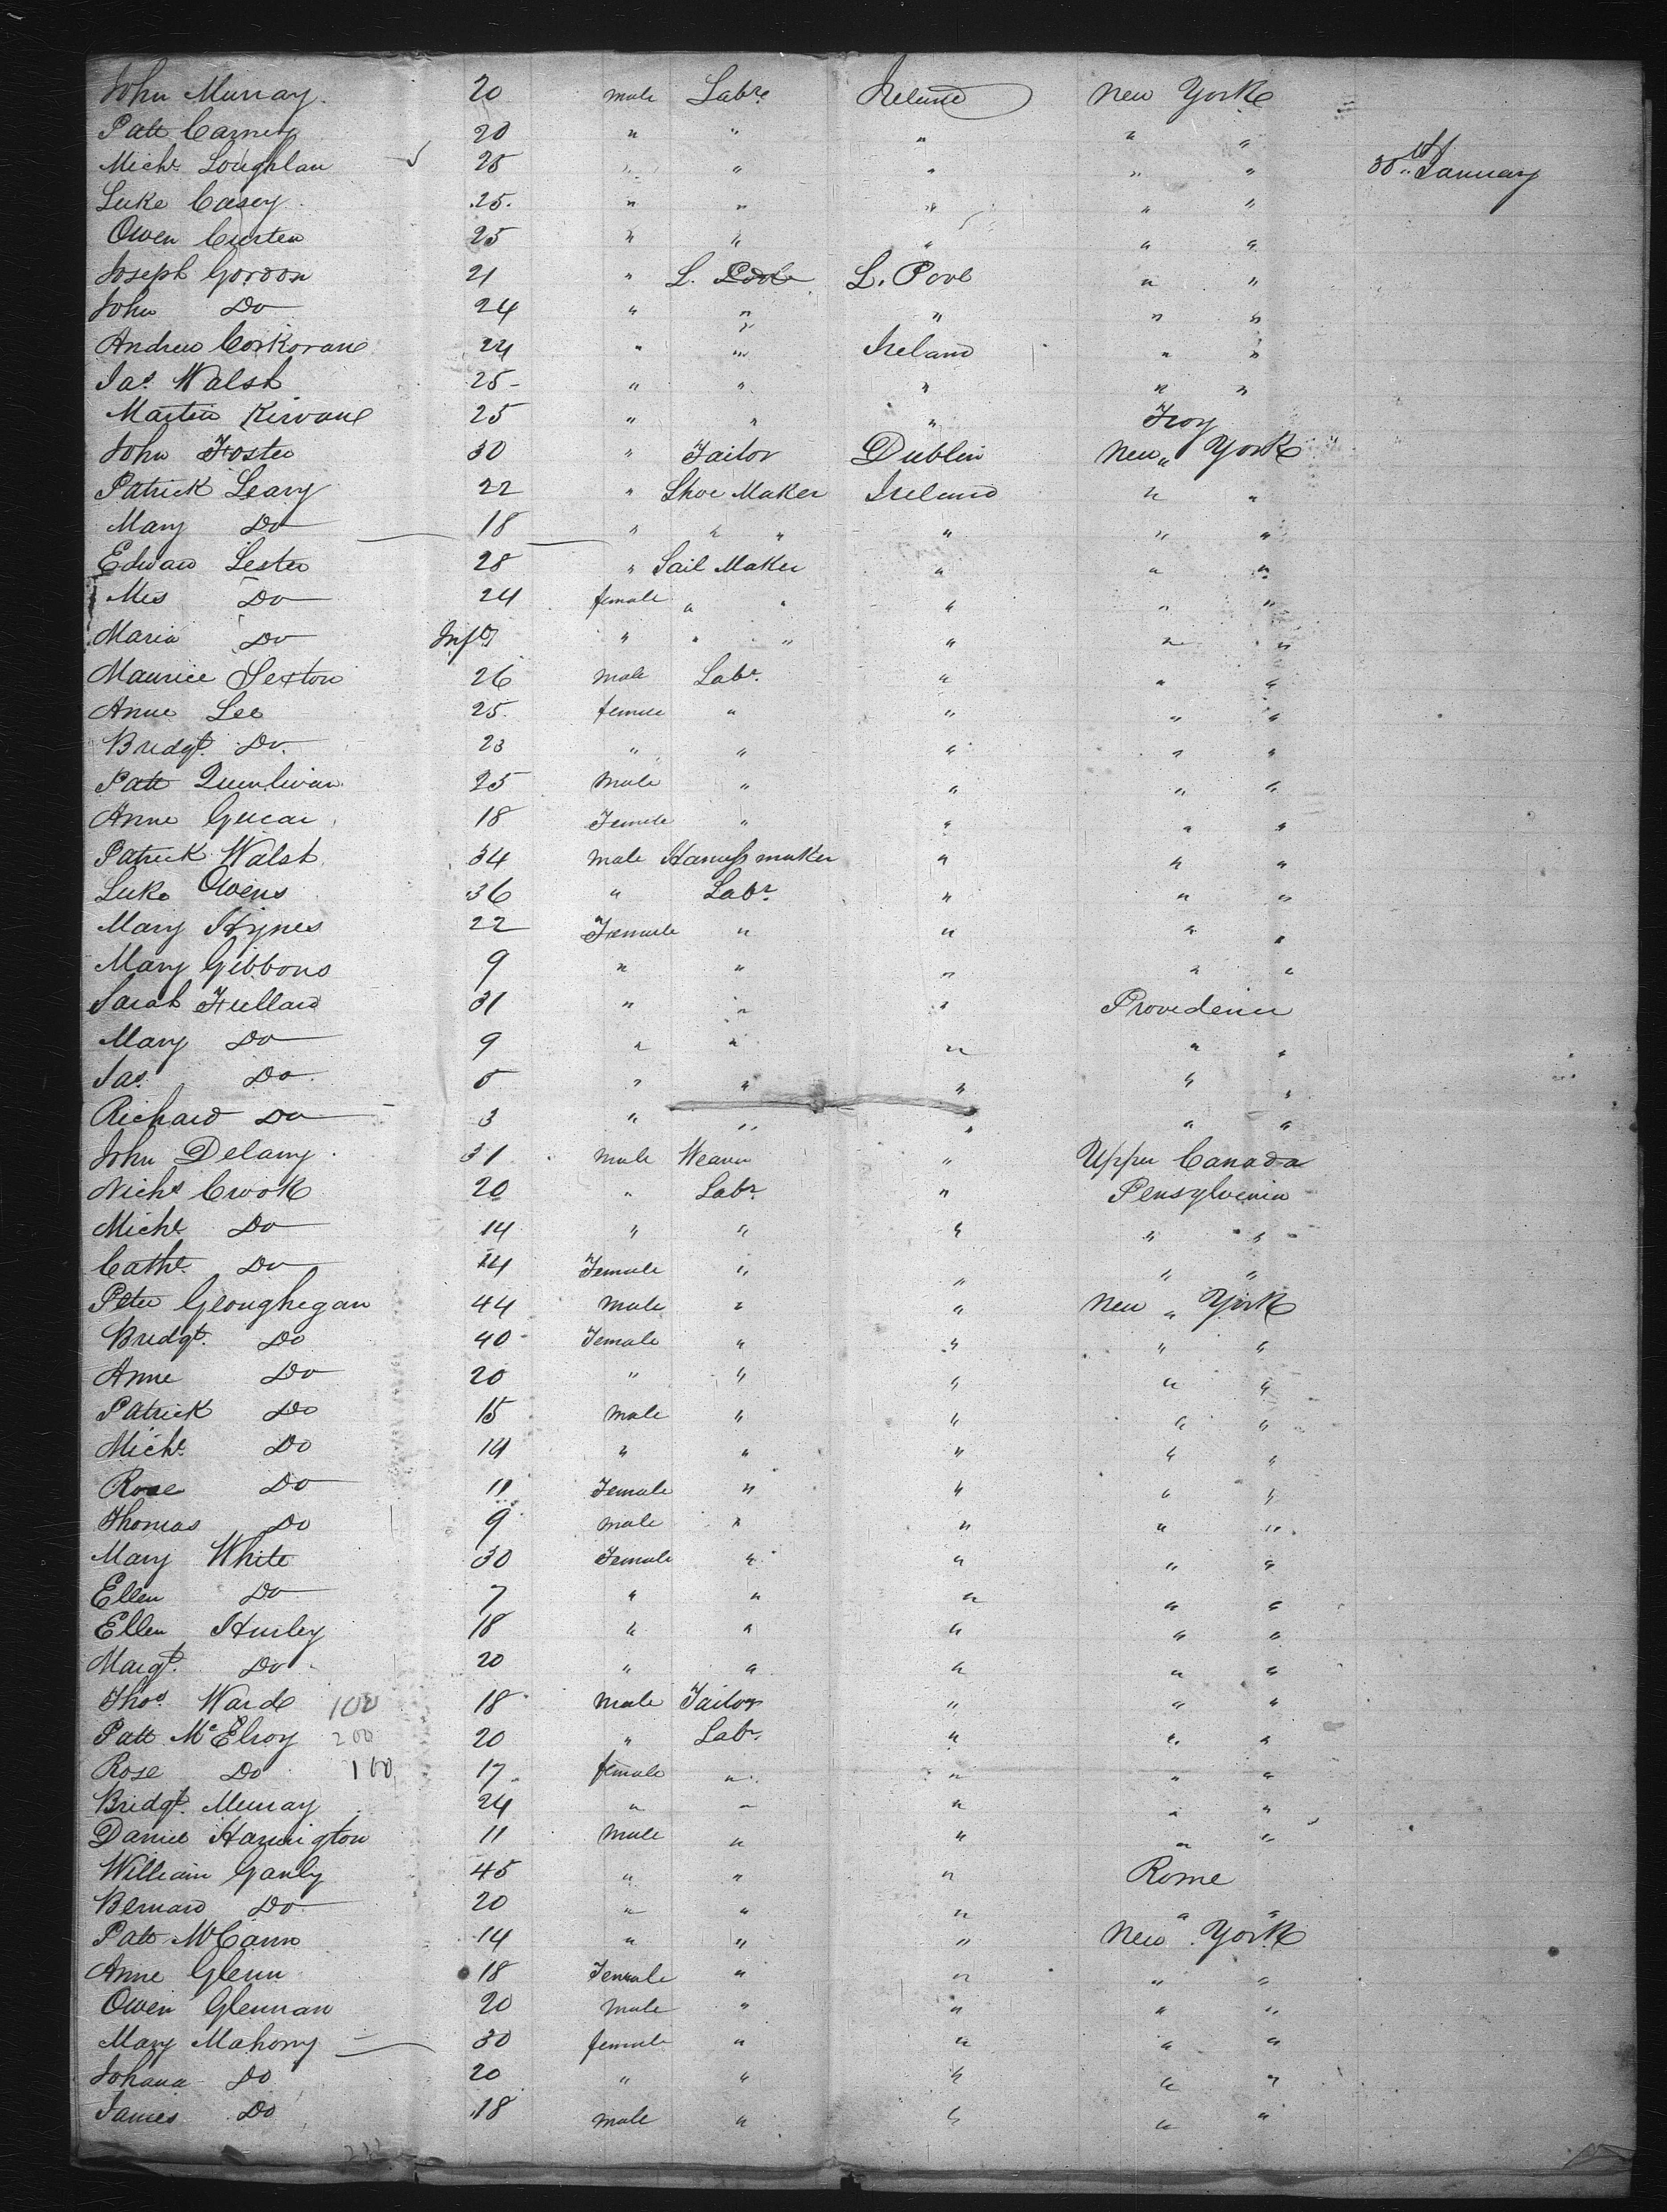 John Murray. 20 male Labr. Ireland New York
Patt Carney 20 " " " " "
Michl. Loughlan 25 " " " " " 30th January
Luke Casey. 25. " " " " "
Owen Curten 25 " " " " "
Joseph Gordon 21 " L. Poole L. Pool " "
John Do 24 " " " " "
Andrew Corkorane 24 " " Ireland " "
Jas. Walsh 25 " " " " "
Martin Kirvane 25 " " " Troy
John Foster 30 " Tailor Dublin New " York
Patrick Leary 22 " Shoe Maker Ireland " "
Mary Do 18 " " " " " "
Edward Lester 28 " Sail Maker " " "
Mrs Do 24 female " " " " "
Maria Do Inft " " " " " "
Maurice Sexton 26 male Labr. " " "
Anne Lee 25. female " " " "
Bridgt. Do. 23 " " " " "
Patt Quinlivan 25 male " " " "
Anne 18 Female " " " "
Patrick Walsh 34 male Harness maker " " "
Luke Owens 36 " Labr. " " "
Mary Hynes 22 Female " " " "
Mary Gibbons 9 " " " " "
Sarah Fullard 31 " " " Providence
Mary Do 9 " " " " "
Jas. Do. 5 " " " " "
Richard Do 3 " " " " "
John Delany. 31. male Weaver " Upper Canada
Nichs Crook 20 " Labr. " Pensylvenia
Michl. Do 14 " " " " "
Cathe. Do 24 Female " " " "
Peter Geoughegan 44 male " " New " York
Bridgt. Do 40 Female " " " "
Anne Do 20 " " " " "
Patrick Do 15 male " " " "
Michl. Do 14 " " " " "
Rose Do 11 Female " " " "
Thomas Do 9 male " " " "
Mary White 30 Female " " " "
Ellen Do 7 " " " " "
Ellen Hurley 18 " " " " "
Margt. Do 20 " " " " "
Thos. Warde 100 18 male Tailor " " "
Patt McElroy 200 20 " Labr. " " "
Rose Do 100 17 female " " " "
Bridgt. Murray 24 " " " " "
Daniel Harrington 11 male " " " "
William Ganly 45 " " " Rome
Bernard Do 20 " " " " "
Patt McCann 14 " " " New " York
Anne Glenn 18 Female " " " "
Owen Glennan 20 male " " " "
Mary Mahony 30 female " " " "
Johana Do 20 " " " " "
James Do 18 male " " " "